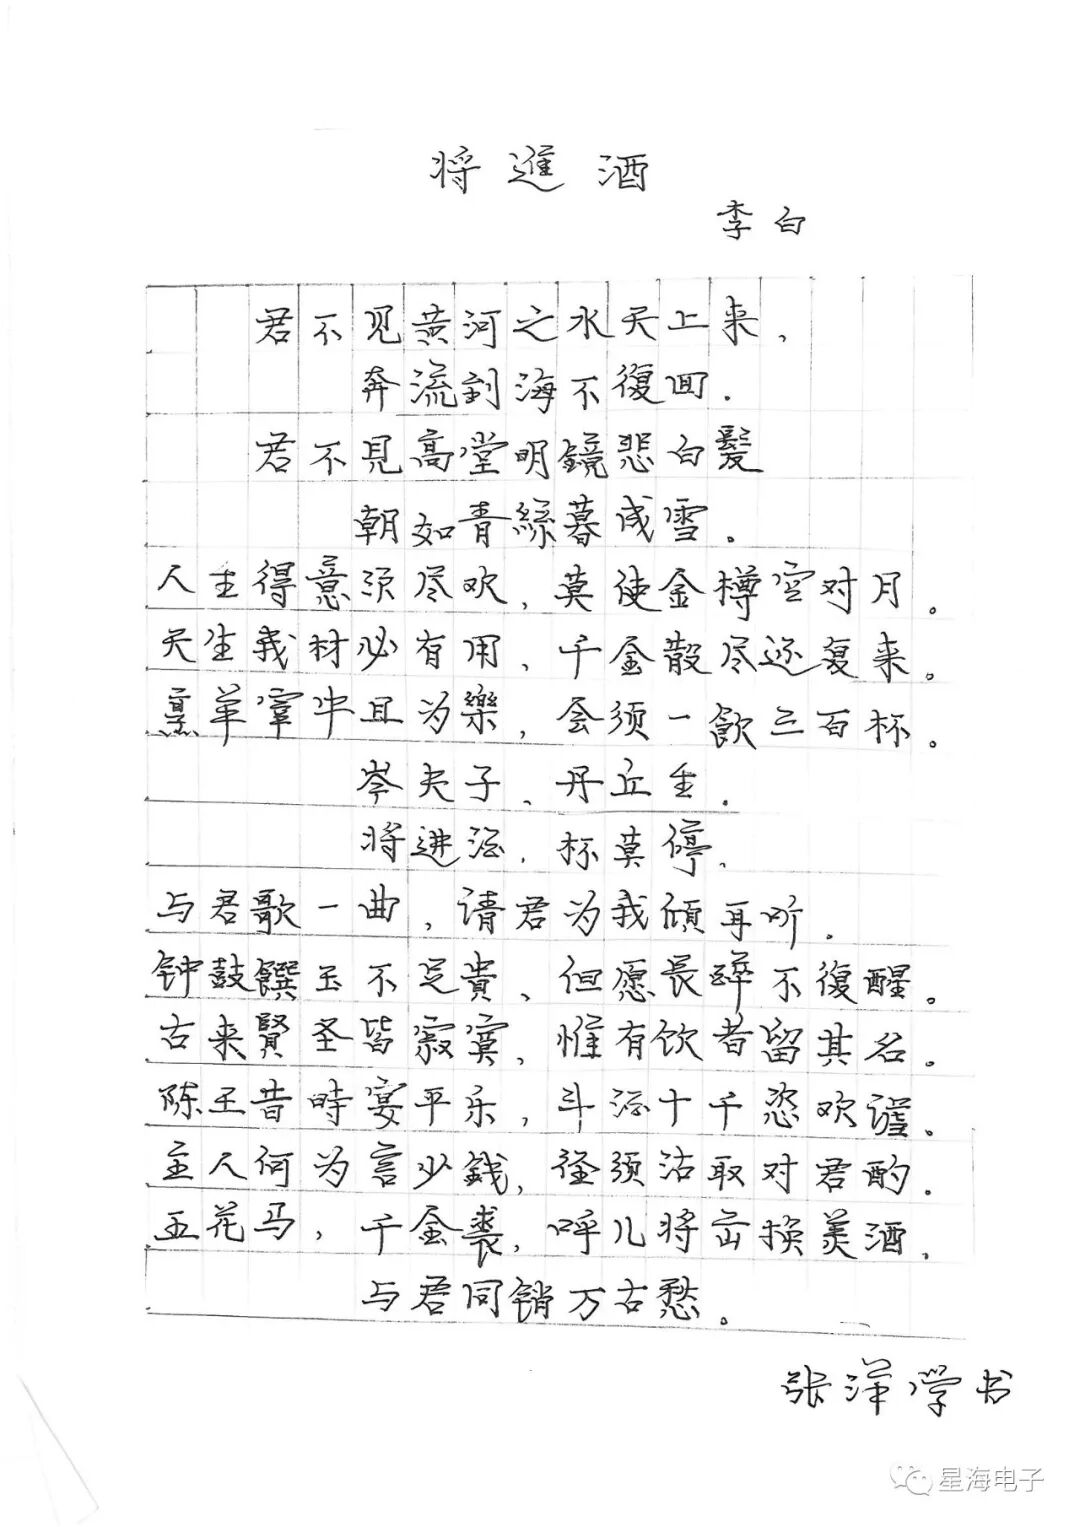 将進酒
李白
君不见黄河之水天上来，
奔流到海不復回．
君不見高堂明鏡悲白髮
朝如青絲暮成雪。
人生得意须尽欢，莫使金樽空对月。
天生我材必有用，千金散尽还复来。
烹羊宰牛且为樂，会须一飲三百杯。
岑夫子、丹丘生．
将进酒，杯莫停、
与君歌一曲，请君为我傾耳听．
钟鼓饌玉不足貴、但愿長醉不復醒。
古来賢圣皆寂寞，惟有饮者留其名。
陈王昔時宴平乐，斗酒十千恣欢謔。
主人何为言少錢，径须沽取对君酌．
五花马，千金裘，呼儿将出换美酒，
与君同销万古愁。
张洋学书
星海电子